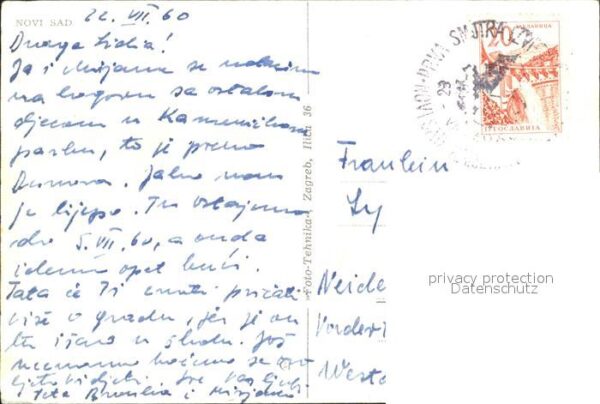 NOVI SAD 22. VII. 60
Draga Lidia!
Ja i Mirjana se nalazimo
na logoru sa ostalom
djecom u Kameničkom
parku, to je preko
Dunava. Jako nam
je lijepo. Tu ostajemo
do 5. VII. 60, a onda
idemo opet kući.
Tata će Ti znati pričati
više o gradu, jer je on
tu išao u školu. Još
ne znamo hoćemo se ovo
ljeto vidjeti. Sve Vas ljubi
Teta i Mirjana
"Foto-Tehnika" Zagreb, Ilica 36
20
ЈУГОСЛАВИЈА
Fraulein
Ly
Neide
Vorder
West
privacy protection
Datenschutz